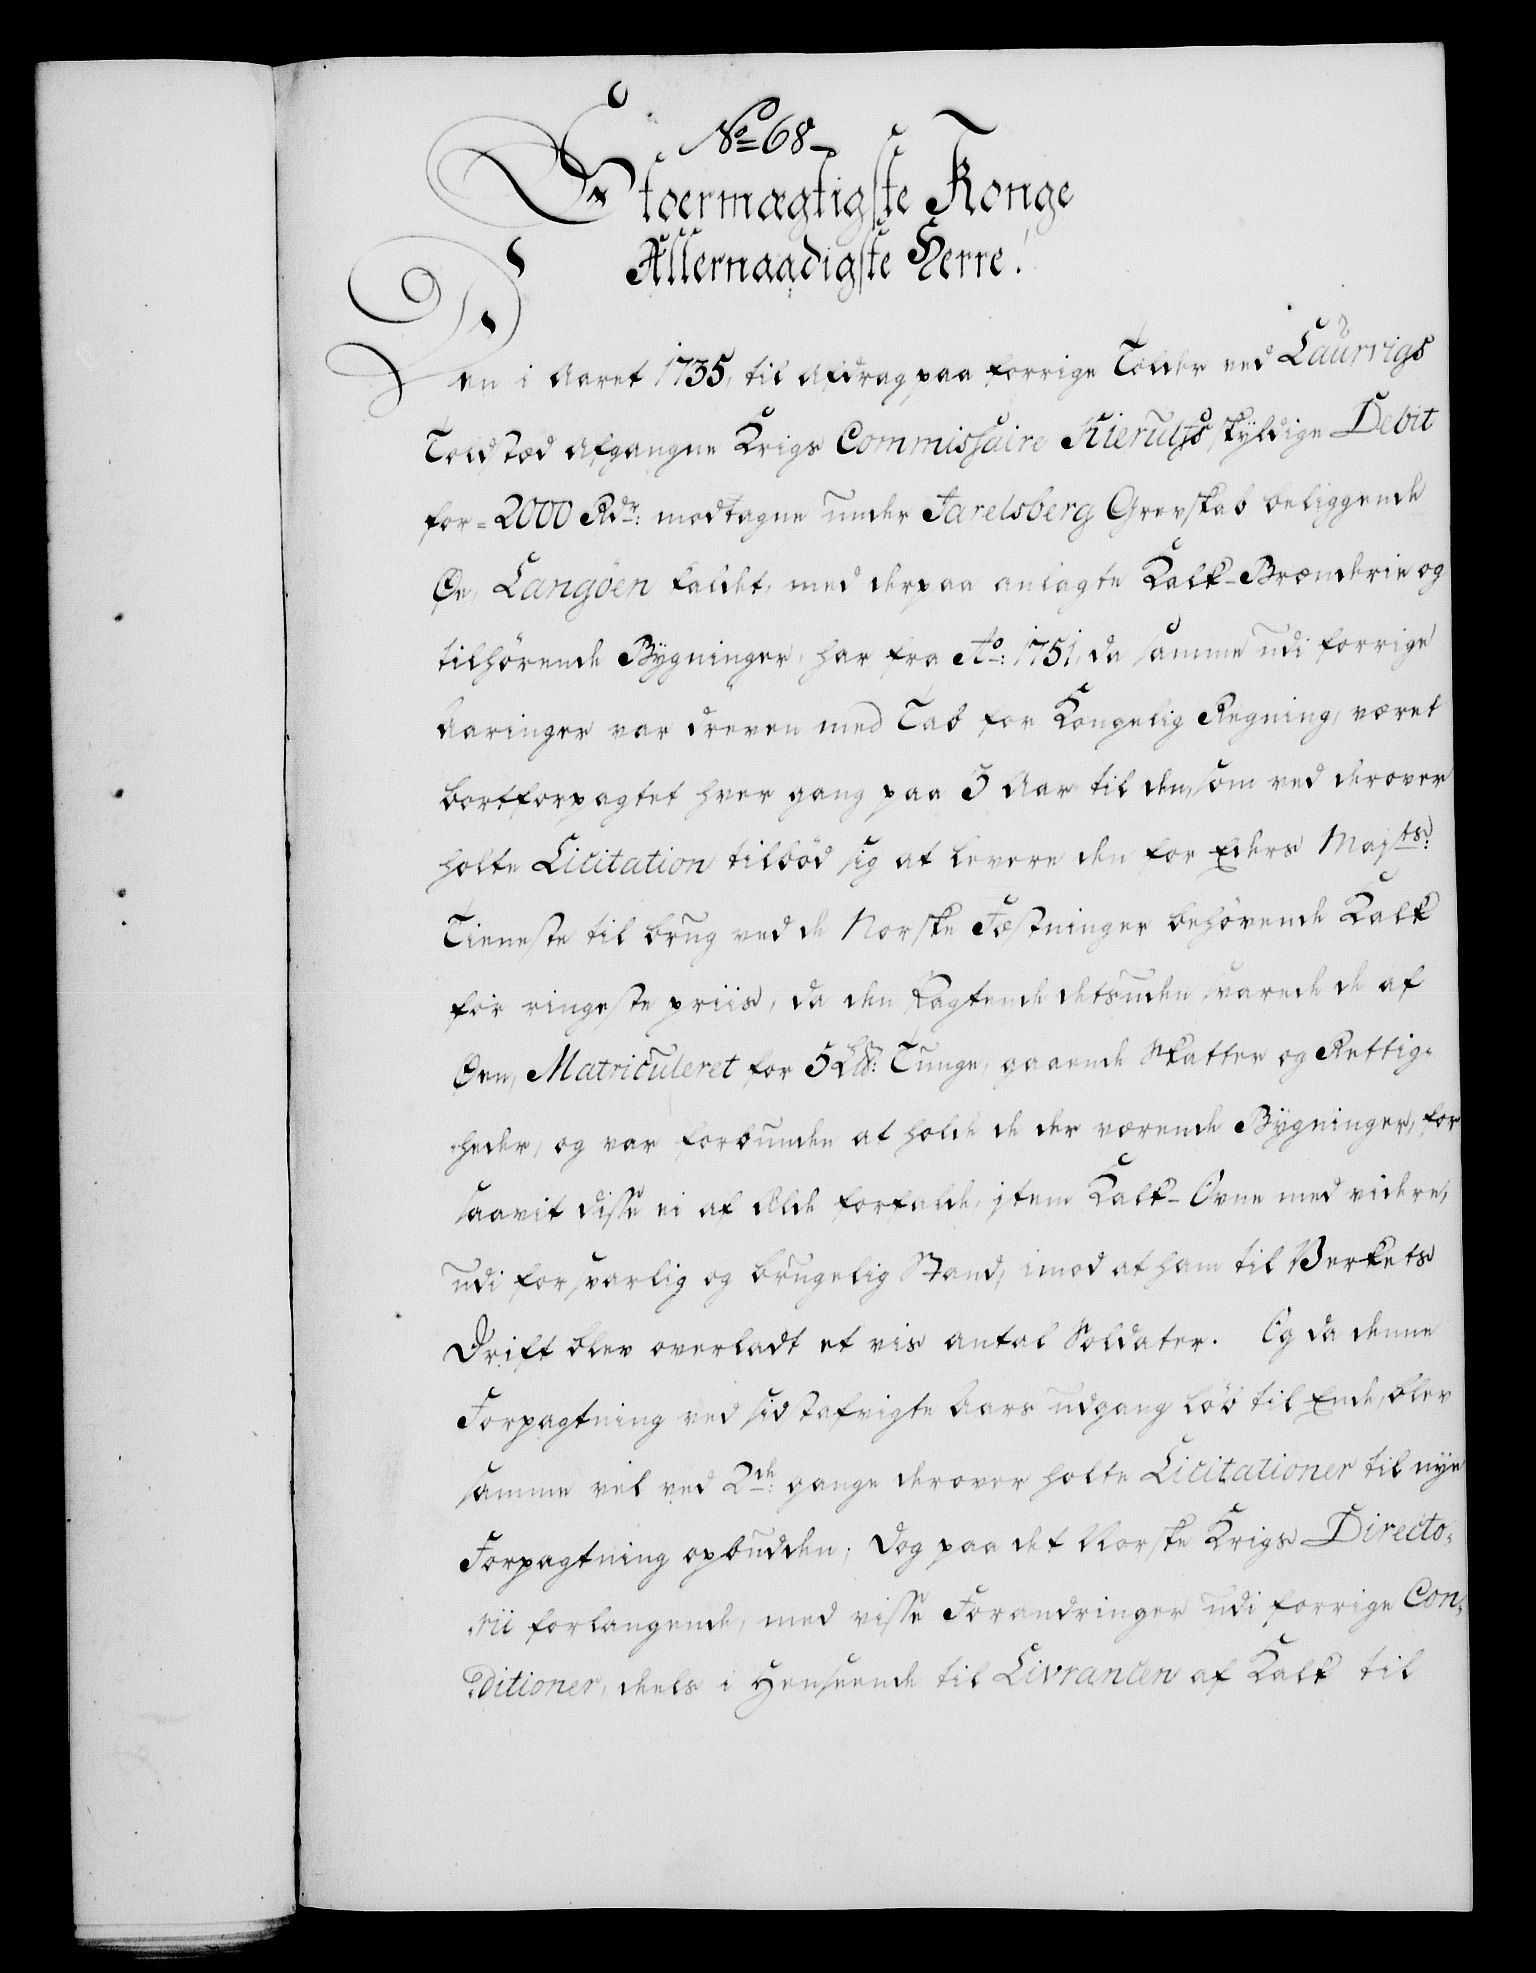 No 68
Stoermægtigste Konge
Allernaadigste Herre!
Den i Aaret 1735, til Afdrag paa forrige Tolder ved Laurvigs
Toldsted Afgangne Krigs Commissaire Kierulfs skyldige Debit
for = 2000 Rdr: modtagne under Jarelsberg Grevskab beliggende
Øe, Langöen kaldet, med derpaa anlagte Kalk-Brænderie og
tilhørende Bygninger, har fra Ao: 1751, da samme udi forrige
Aaringer var dreven med Tab for Kongelig Regning, været
bortforpagtet hver gang paa 5 Aar til den, som ved derover
holte Licitation tilbød sig at levere den for Eders Majts:
Tieneste til brug ved de Norske Fæstninger behøvende Kalk
for ringeste priis, da den Fagtende desuden svarede de af
Øen, Matriculeret for 5 Lb: Tunge, gaaende Skatter og Rettig-
-heder, og var forbunden at holde de der værende Bygninger, for
saavit disse ei af Ælde forfalde, item Kalk-Ovne med videre,
udi forsvarlig og brugelig Stand, imod at ham til Verkets
Drift blev overladt et vis antal Soldater. Og da denne
Forpagtning ved sidstafvigte Aars udgang løb til Ende, blev
samme vel ved 2de: gange derover holte Licitationer til nye
Forpagtning opbudden; dog paa det Norske Krigs Directo-
-rii forlangende, med visse Forandringer udi forrige Con-
-ditioner, deels i Henseende til Livrancen af Kalk til